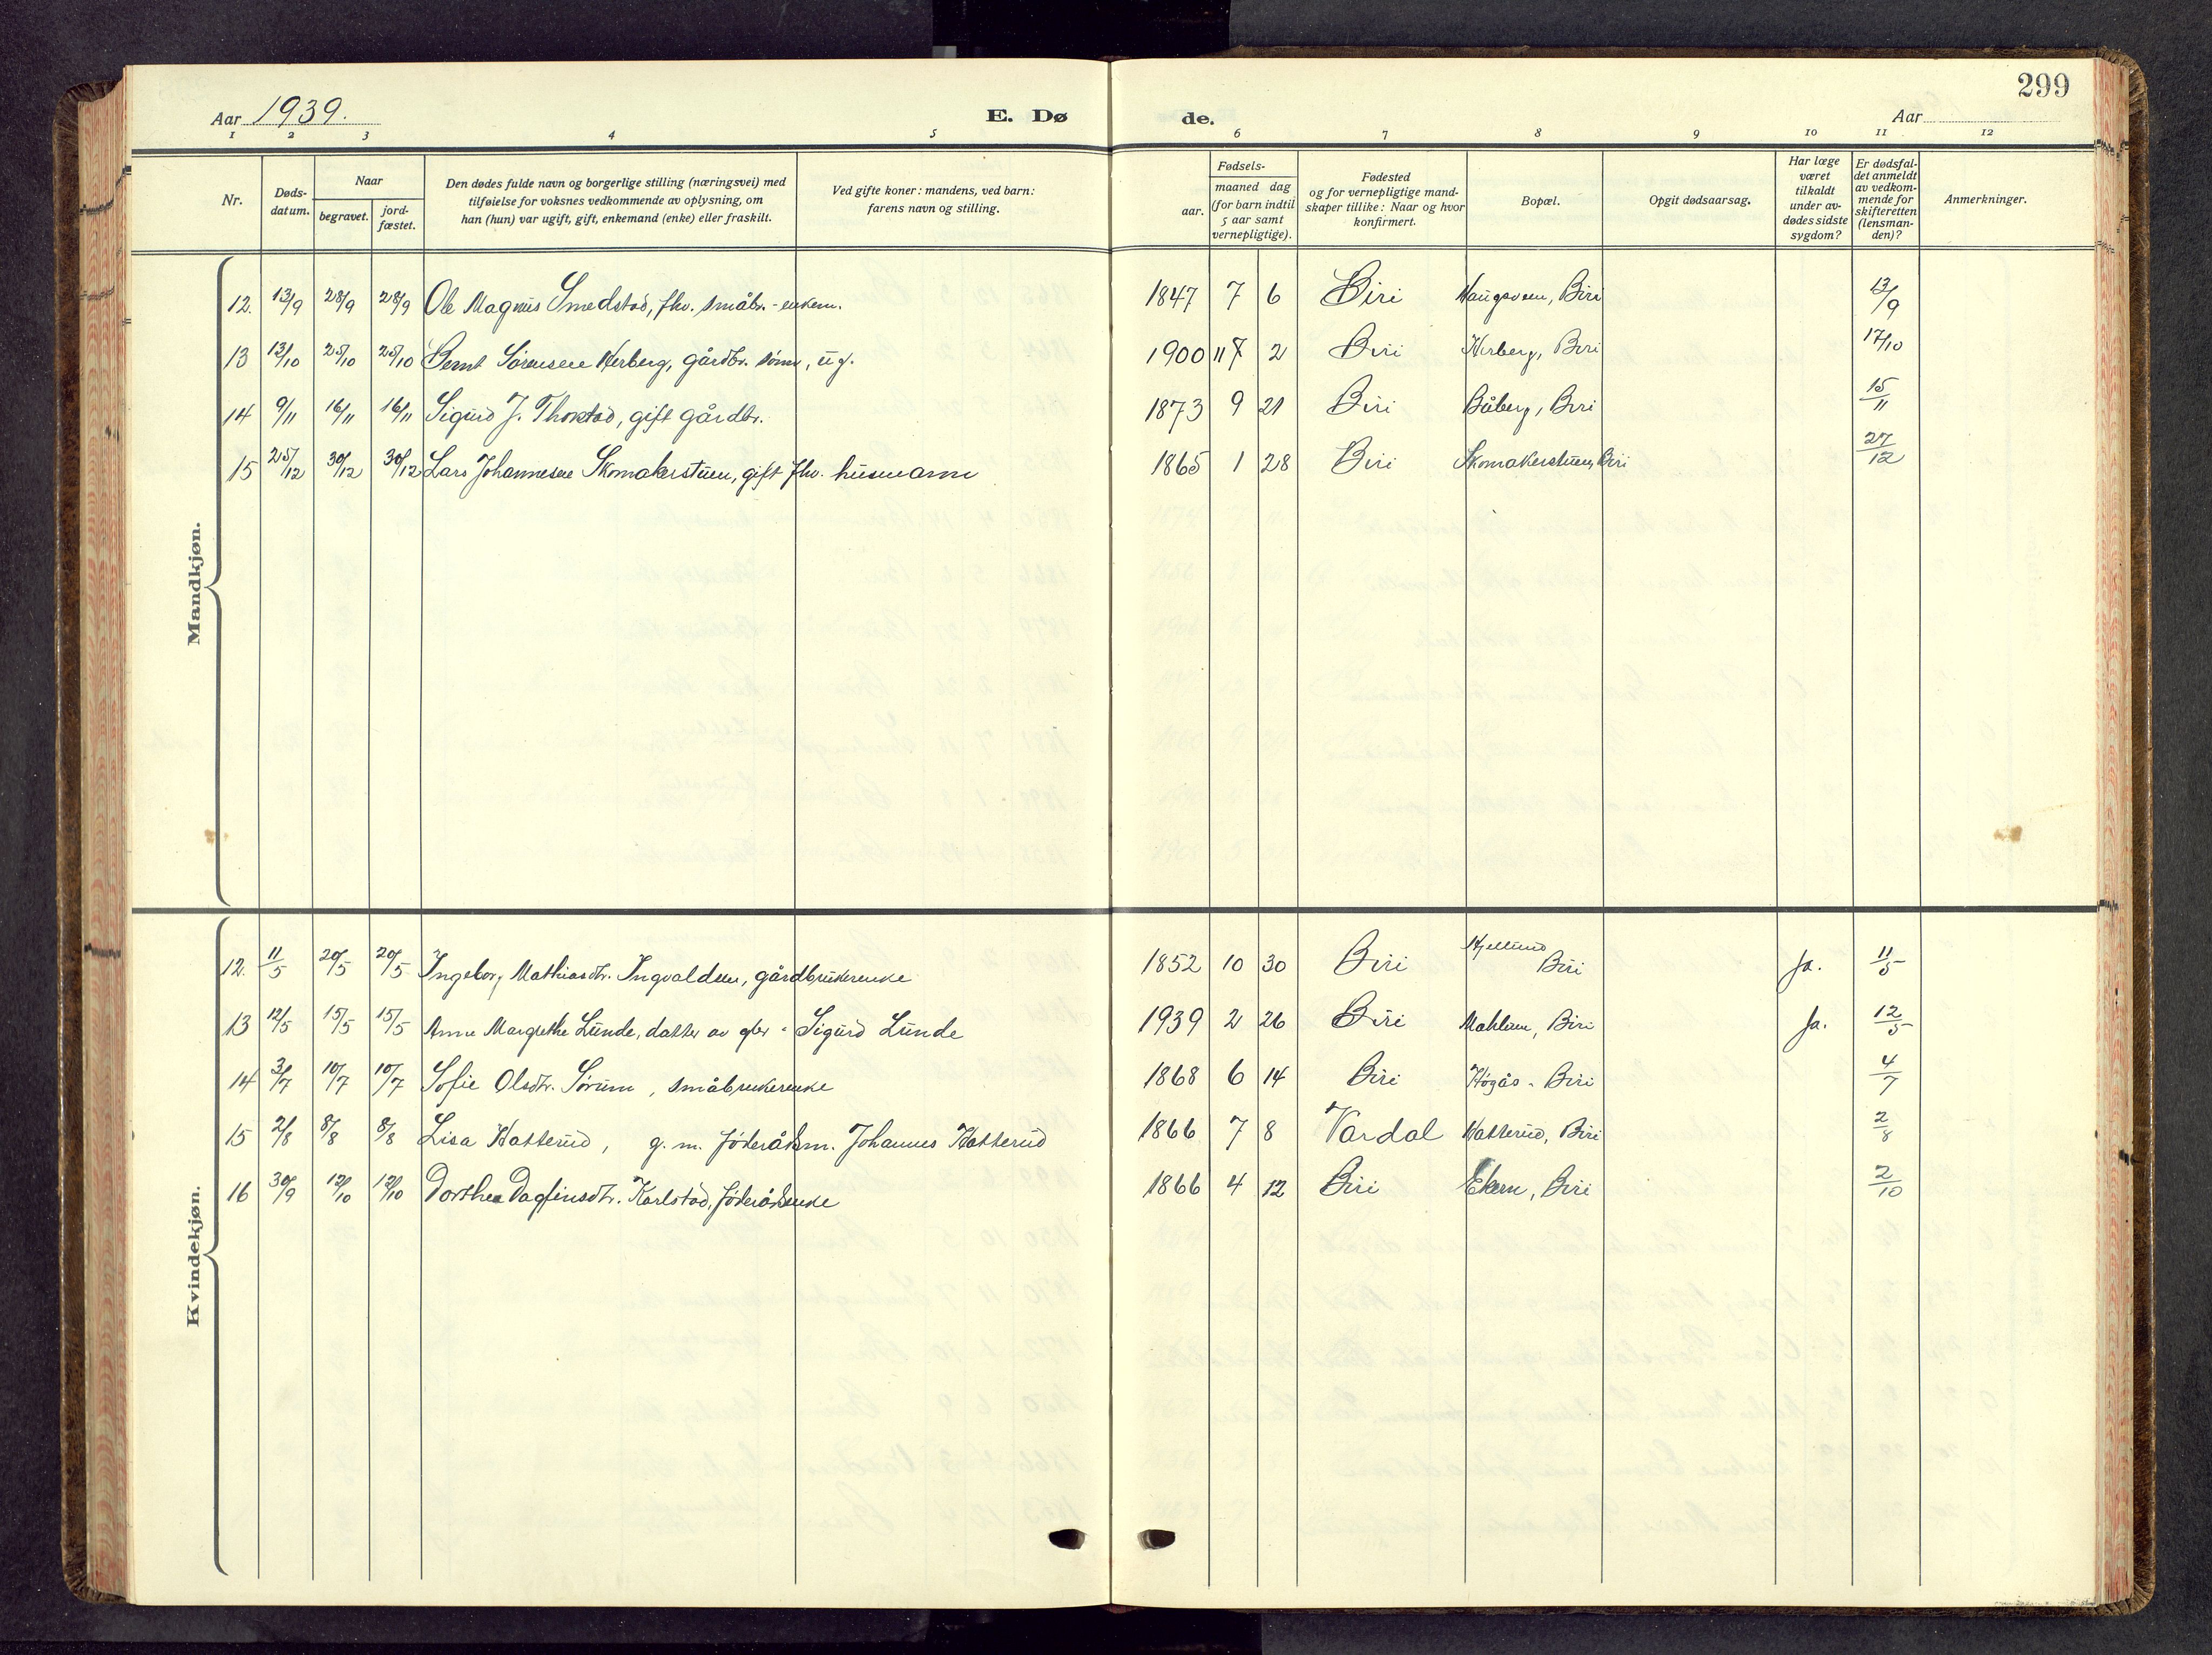 299
Aar 1939.
E. Dø
de.
Aar
1 2 3 4 5 6 7 8 9 10 11 12
Nr.
Døds-
datum.
Naar
begravet.
jord-
fæstet.
Den dødes fulde navn og borgerlige stilling (næringsvei) med
tilføielse for voksnes vedkommende av oplysning, om
han (hun) var ugift, gift, enkemand (enke) eller fraskilt.
Ved gifte koner: mandens, ved barn:
farens navn og stilling.
Fødsels-
aar.
maaned dag
(for barn indtil
5 aar samt
vernepligtige).
Fødested
og for vernepligtige mand-
skaper tillike: Naar og hvor
konfirmert.
Bopæl.
Opgit dødsaarsag.
Har læge
været
tilkaldt
under av-
dødes sidste
sygdom?
Er dødsfal-
det anmeldt
av vedkom-
mende for
skifteretten
(lensman-
den)?
Anmerkninger.
Mandkjøn.
12. 13/9 28/9 28/9 Ole Magnus Smedstad, fhv. småbr. - enkem. 1847 7 6 Biri Haugsveen, Biri 13/9
13 13/10 25/10 25/10 Bernt Sørensen Kerberg, gårdbr. sønn, ug. 1900 11 2 Biri Kerberg, Biri 17/10
14 9/11 16/11 16/11 Sigurd J. Thorstad, gift gårdbr. 1873 9 21 Biri Båberg, Biri 15/11
15 25/12 30/12 30/12 Lars Johannesen Skomakerstuen, gift fhv. husmann 1865 1 28 Biri Skomakerstuen, Biri 27/12
Kvindekjøn.
12. 11/5 20/5 20/5 Ingeborg Mathiasdtr. Ingvaldsen, gårdbrukerenke 1852 10 30 Biri Biri Ja. 11/5
13 12/5 15/5 15/5 Anne Margrethe Lunde, datter av gbr. Sigurd Lunde 1939 2 26 Biri Mahlum, Biri Ja. 12/5
14 3/7 10/7 10/7 Sofie Olsdtr. Sørum, småbrukerenke 1868 6 14 Biri Høgås - Biri 4/7
15 2/8 8/8 8/8 Lisa Hatterud, g. m. føderådsm. Johannes Hatterud 1866 7 8 Vardal Hatterud, Biri 2/8
16 30/9 12/10 12/10 Dorthea Dagfinsdtr. Karlstad, føderådsenke 1866 4 12 Biri Ekern, Biri 2/10